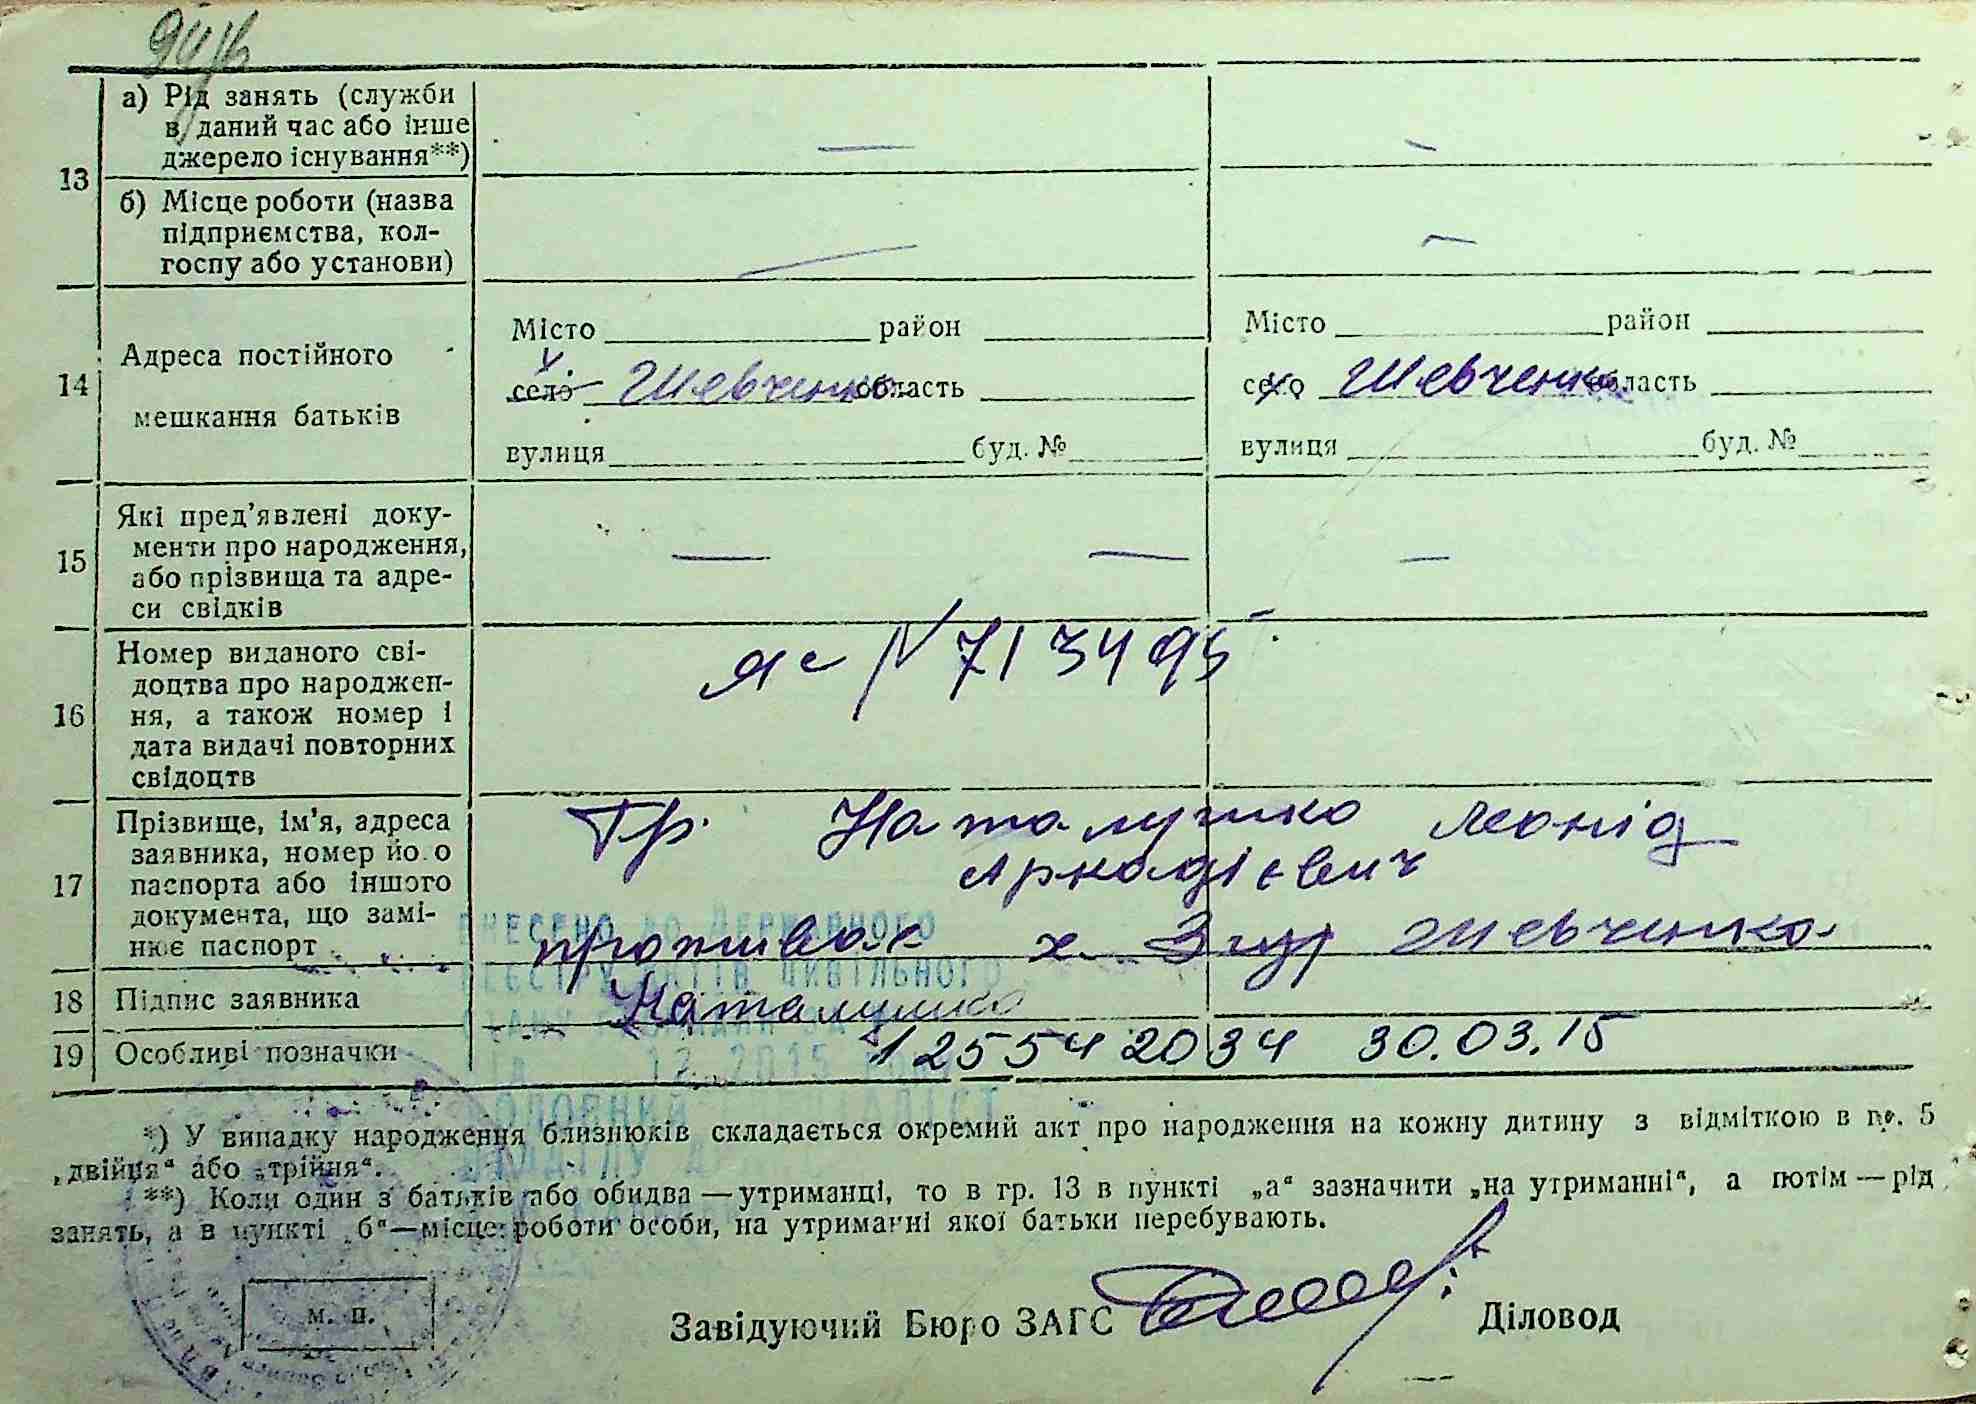 13
а) Рід занять (служби
в даний час або інше
джерело існування**)
—
—
б) Місце роботи (назва
підприємства, кол-
госпу або установи)
—
—
14
Адреса постійного
мешкання батьків
Місто район
х. село Шевченко область
вулиця буд. №
Місто район
село Шевченко область
вулиця буд. №
15
Які пред’явлені доку-
менти про народження,
або прізвища та адре-
си свідків
— — —
16
Номер виданого сві-
доцтва про народжен-
ня, а також номер і
дата видачі повторних
свідоцтв
яс N 713495
17
Прізвище, ім’я, адреса
заявника, номер його
паспорта або іншого
документа, що замі-
нює паспорт
Гр. Наталушко Леонід
Аркадієвич
прожива х. Шевченко
18
Підпис заявника
Наталушко
19
Особливі позначки
12554 2034 30.03.15
ВНЕСЕНО ДО ДЕРЖАВНОГО
РЕЄСТРУ АКТІВ ЦИВІЛЬНОГО
12 2015
*) У випадку народження близнюків складається окремий акт про народження на кожну дитину з відміткою в гр. 5
„двійця“ або „трійня“.
**) Коли один з батьків або обидва — утриманці, то в гр. 13 в пункті „а“ зазначити „на утриманні“, а потім — рід
занять, а в пункті „б“—місце роботи особи, на утриманні якої батьки перебувають.
М. П.
Завідуючий Бюро ЗАГС
Діловод